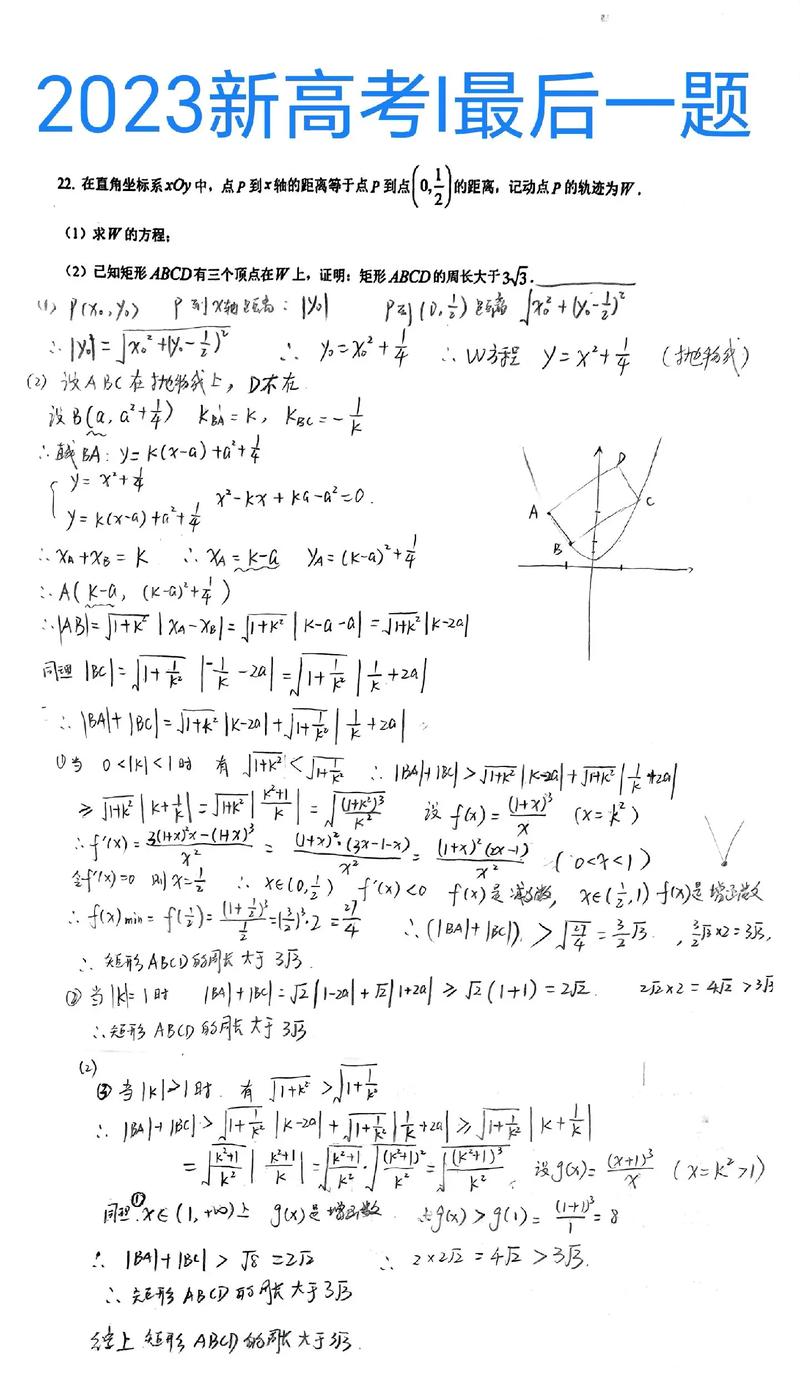 2023新高考I最后一题
22. 在直角坐标系xOy中，点P到x轴的距离等于点P到点(0,1/2)的距离，记动点P的轨迹为W.
（1）求W的方程；
（2）已知矩形ABCD有三个顶点在W上，证明：矩形ABCD的周长大于3√3.
(1) P(x₀,y₀) P到x轴距离：|y₀| P到(0,1/2)距离 √(x₀²+(y₀-1/2)²)
∴|y₀|=√(x₀²+(y₀-1/2)²) ∴ y₀=x₀²+1/4 ∴W方程 y=x²+1/4 (抛物线)
(2) 设ABC在抛物线上，D不在
设B(a, a²+1/4) K_BA=K, K_BC=-1/K
∴直线BA: y=K(x-a)+a²+1/4
{ y=x²+1/4
y=K(x-a)+a²+1/4 x²-Kx+Ka-a²=0.
∴x_A+x_B=K ∴x_A=K-a y_A=(K-a)²+1/4
∴A(K-a, (K-a)²+1/4)
∴|AB|=√(1+K²)|x_A-x_B|=√(1+K²)|K-a-a|=√(1+K²)|K-2a|
同理|BC|=√(1+1/K²)|-1/K-2a|=√(1+1/K²)|1/K+2a|
∴|BA|+|BC|=√(1+K²)|K-2a|+√(1+1/K²)|1/K+2a|
A B C D
①当 0<|K|<1时 有 √(1+K²)<√(1+1/K²) ∴|BA|+|BC|>√(1+K²)|K-2a|+√(1+K²)|1/K+2a|
≥√(1+K²)|K+1/K|=√(1+K²)|(K²+1)/K|=√((1+K²)³/K²) 设f(x)=(1+x)³/x (x=K²)
∴f'(x)=(3(1+x)²x-(1+x)³)/x²=((1+x)²·(3x-1-x))/x²=((1+x)²(2x-1))/x² (0<x<1)
令f'(x)=0 则x=1/2 ∴x∈(0,1/2) f'(x)<0 f(x)是减函数, x∈(1/2,1) f(x)是增函数
∴f(x)min=f(1/2)=(1+1/2)³/(1/2)=(3/2)³·2=27/4 ∴(|BA|+|BC|)>√(27/4)=3/2√3. , 3/2√3×2=3√3,
∴矩形ABCD的周长大于3√3.
②当|K|=1时 |BA|+|BC|=√2|1-2a|+√2|1+2a|≥√2(1+1)=2√2. 2√2×2=4√2>3√3
∴矩形ABCD的周长大于3√3
(2)
③当|K|>1时. 有 √(1+K²)>√(1+1/K²)
∴|BA|+|BC|>√(1+1/K²)|K-2a|+√(1+1/K²)|1/K+2a|≥√(1+1/K²)|K+1/K|
=√((K²+1)/K²)|(K²+1)/K|=√((K²+1)/K²)·√((K²+1)²/K²)=√((K²+1)³/K²). 设g(x)=(x+1)³/x (x=K²>1)
同理① x∈(1,+∞)上 g(x)是增函数 ∴g(x)>g(1)=(1+1)³/1=8
∴|BA|+|BC|>√8=2√2 ∴2×2√2=4√2>3√3.
∴矩形ABCD的周长大于3√3
综上 矩形ABCD的周长大于3√3.